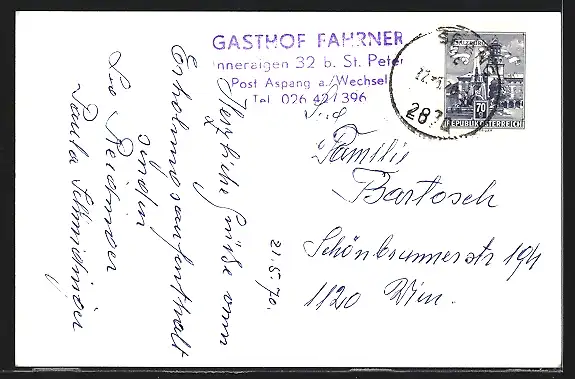 GASTHOF FAHRNER
Inneraigen 32 b. St. Peter
Post Aspang a. Wechsel
Tel 026 42/396
SALZBURG
70
REPUBLIK ÖSTERREICH
287
Familie
Bartosch
Schönbrunnerstr 194
1120 Wien.
21.5.70.
Herzliche Grüße vom
Erholungsaufenthalt
senden
Paula Schmidinger